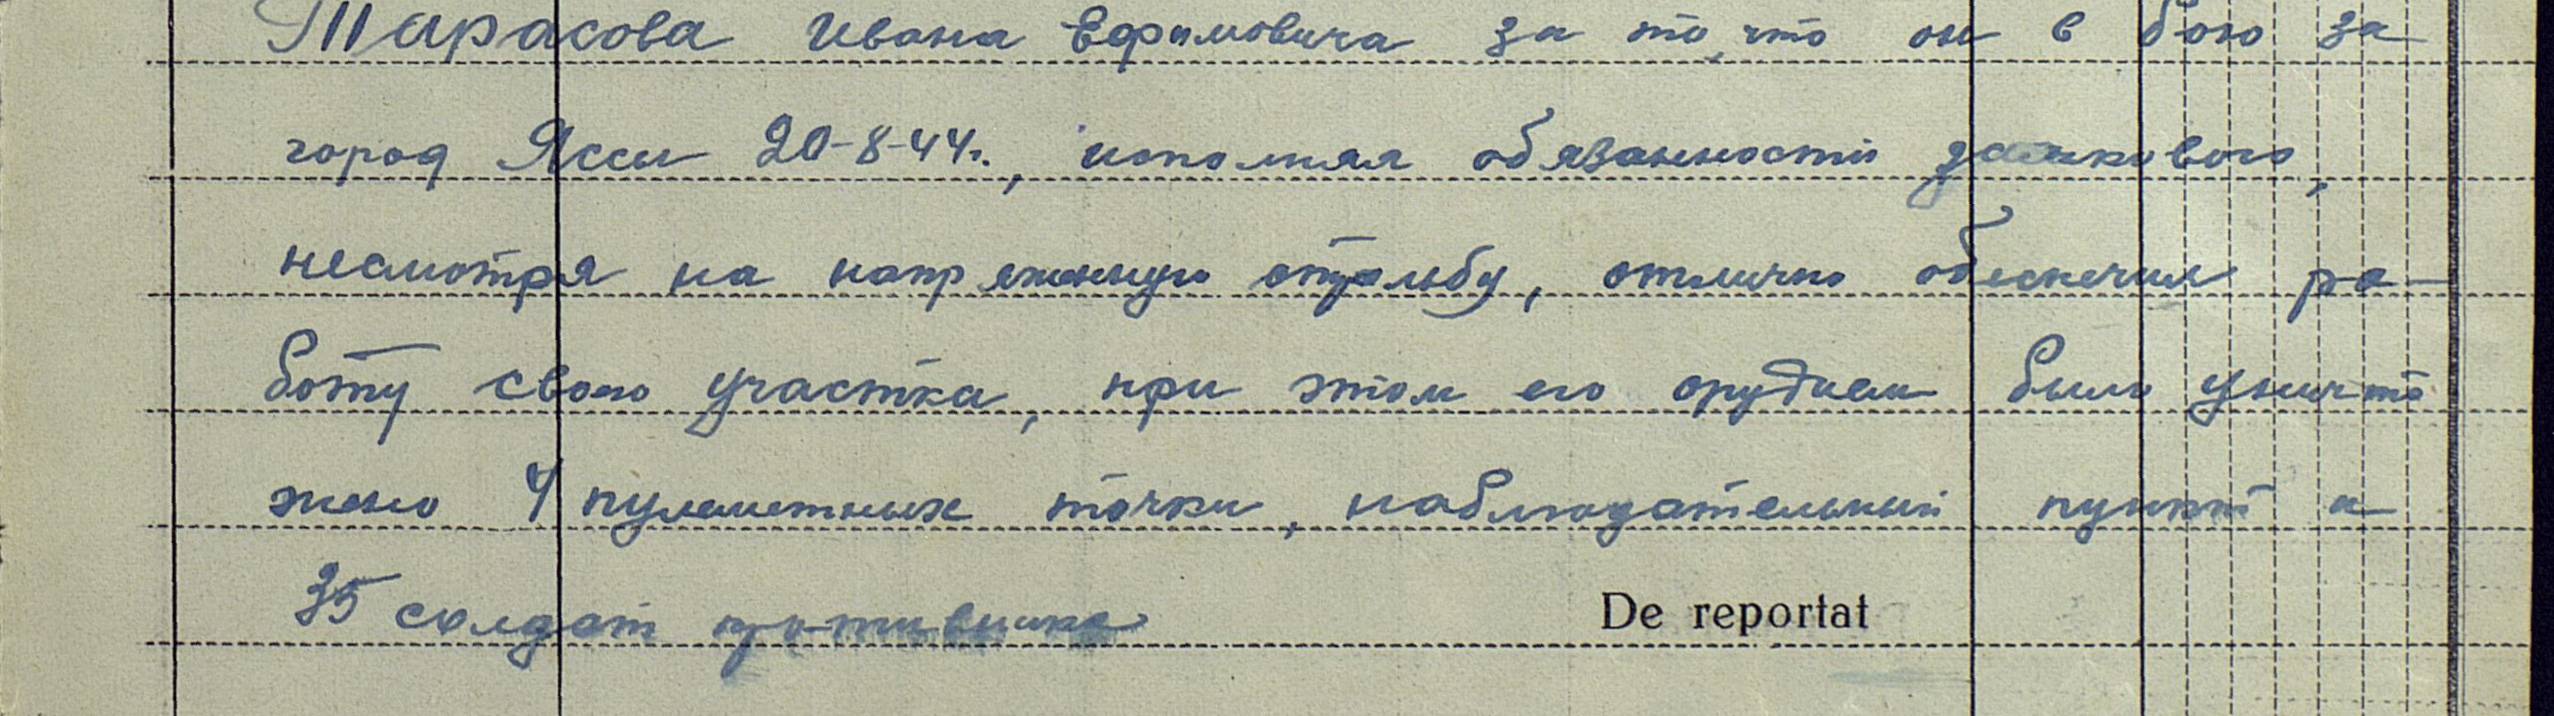 Тарасова Ивана Ефимовича за то, что он в бою за
город Яссы 20-8-44г., исполняя обязанности замкового,
несмотря на напряженную стрельбу, отлично обеспечил ра-
боту свого участка, при этом его орудием было уничто
жено 4 пулеметных точки, наблюдательный пункт и
35 солдат противника
De reportat